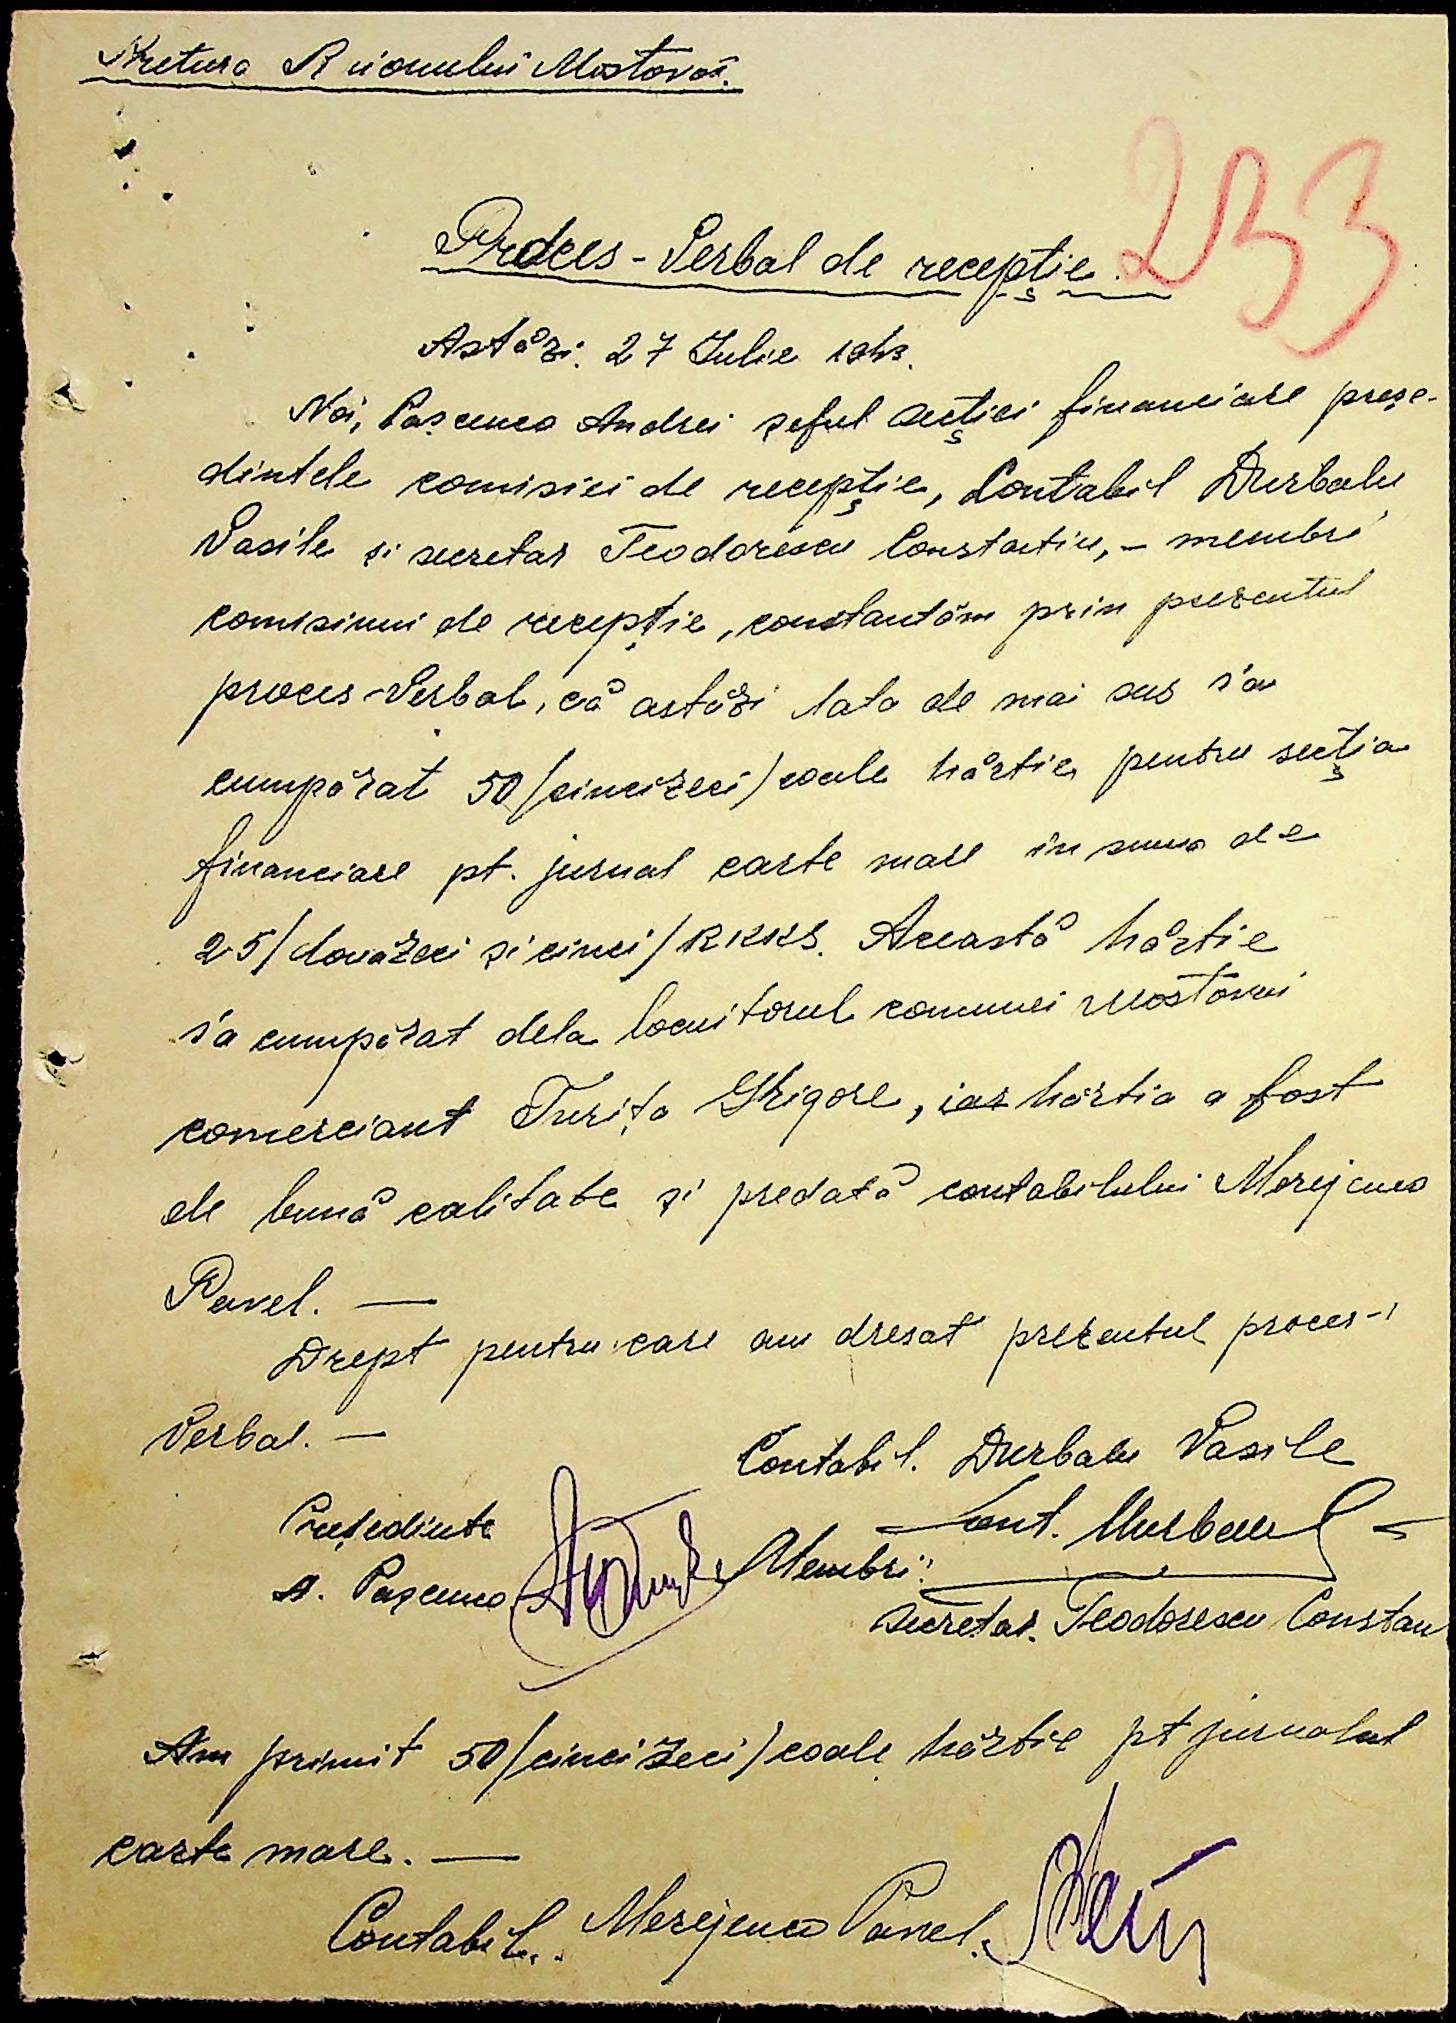 Pretura Raionului Mostovoi.
233
Proces-Verbal de recepție.
Astăzi. 27 Iulie 1943.
Noi, Pașcenco Andrei șeful secției financiare preșe-
dintele comisiei de recepție, Contabil Durbalu
Vasile și secretar Teodorescu Constantin, - membri
comisiuni de recepție, constantăm prin prezentul
proces-Verbal, că astăzi data de mai sus s'a
cumpărat 50/cincizeci/coale hărtie pentru secția
financiare pt. jurnal carte mare in suma de
25/douăzeci și cinci/RKKS. Această hărtie
s'a cumpărat dela locuitorul comunei Mostovoi
comerciant Turița Grigore, iar hărtia a fost
de bună calitate și predată contabilului Merejenco
Pavel. —
Drept pentru care am dresat prezentul proces-
Verbal. —
Contabil. Durbalu Vasile
Președinte
Cont. Durbalu
A. Pașcenco
Membri:
Secretar. Teodorescu Constan
Am primit 50/cincizeci/coale hărtie pt jurnalul
carte mare. —
Contabil. Merejenco Pavel.